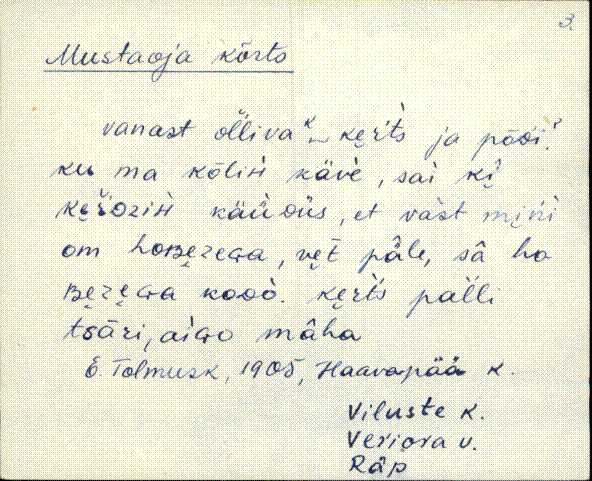 3.
Mustaoja kõrts
vanast olliva ke̬ŕt́s ja põõi.
ku ma kõliH käve, sai ki̬
ke̬ŕozin käüdüs, et vast mińi
om hoʙe̬ze̬ɢa, ve̬t päle, sä ho
ʙe̬ze̬ɢa kooò. ke̬ŕt́s pälli
tsäri, aiɢo mäha
E. Tolmusk, 1905, Haavapää k.
Viluste k.
Veriora v.
Räp